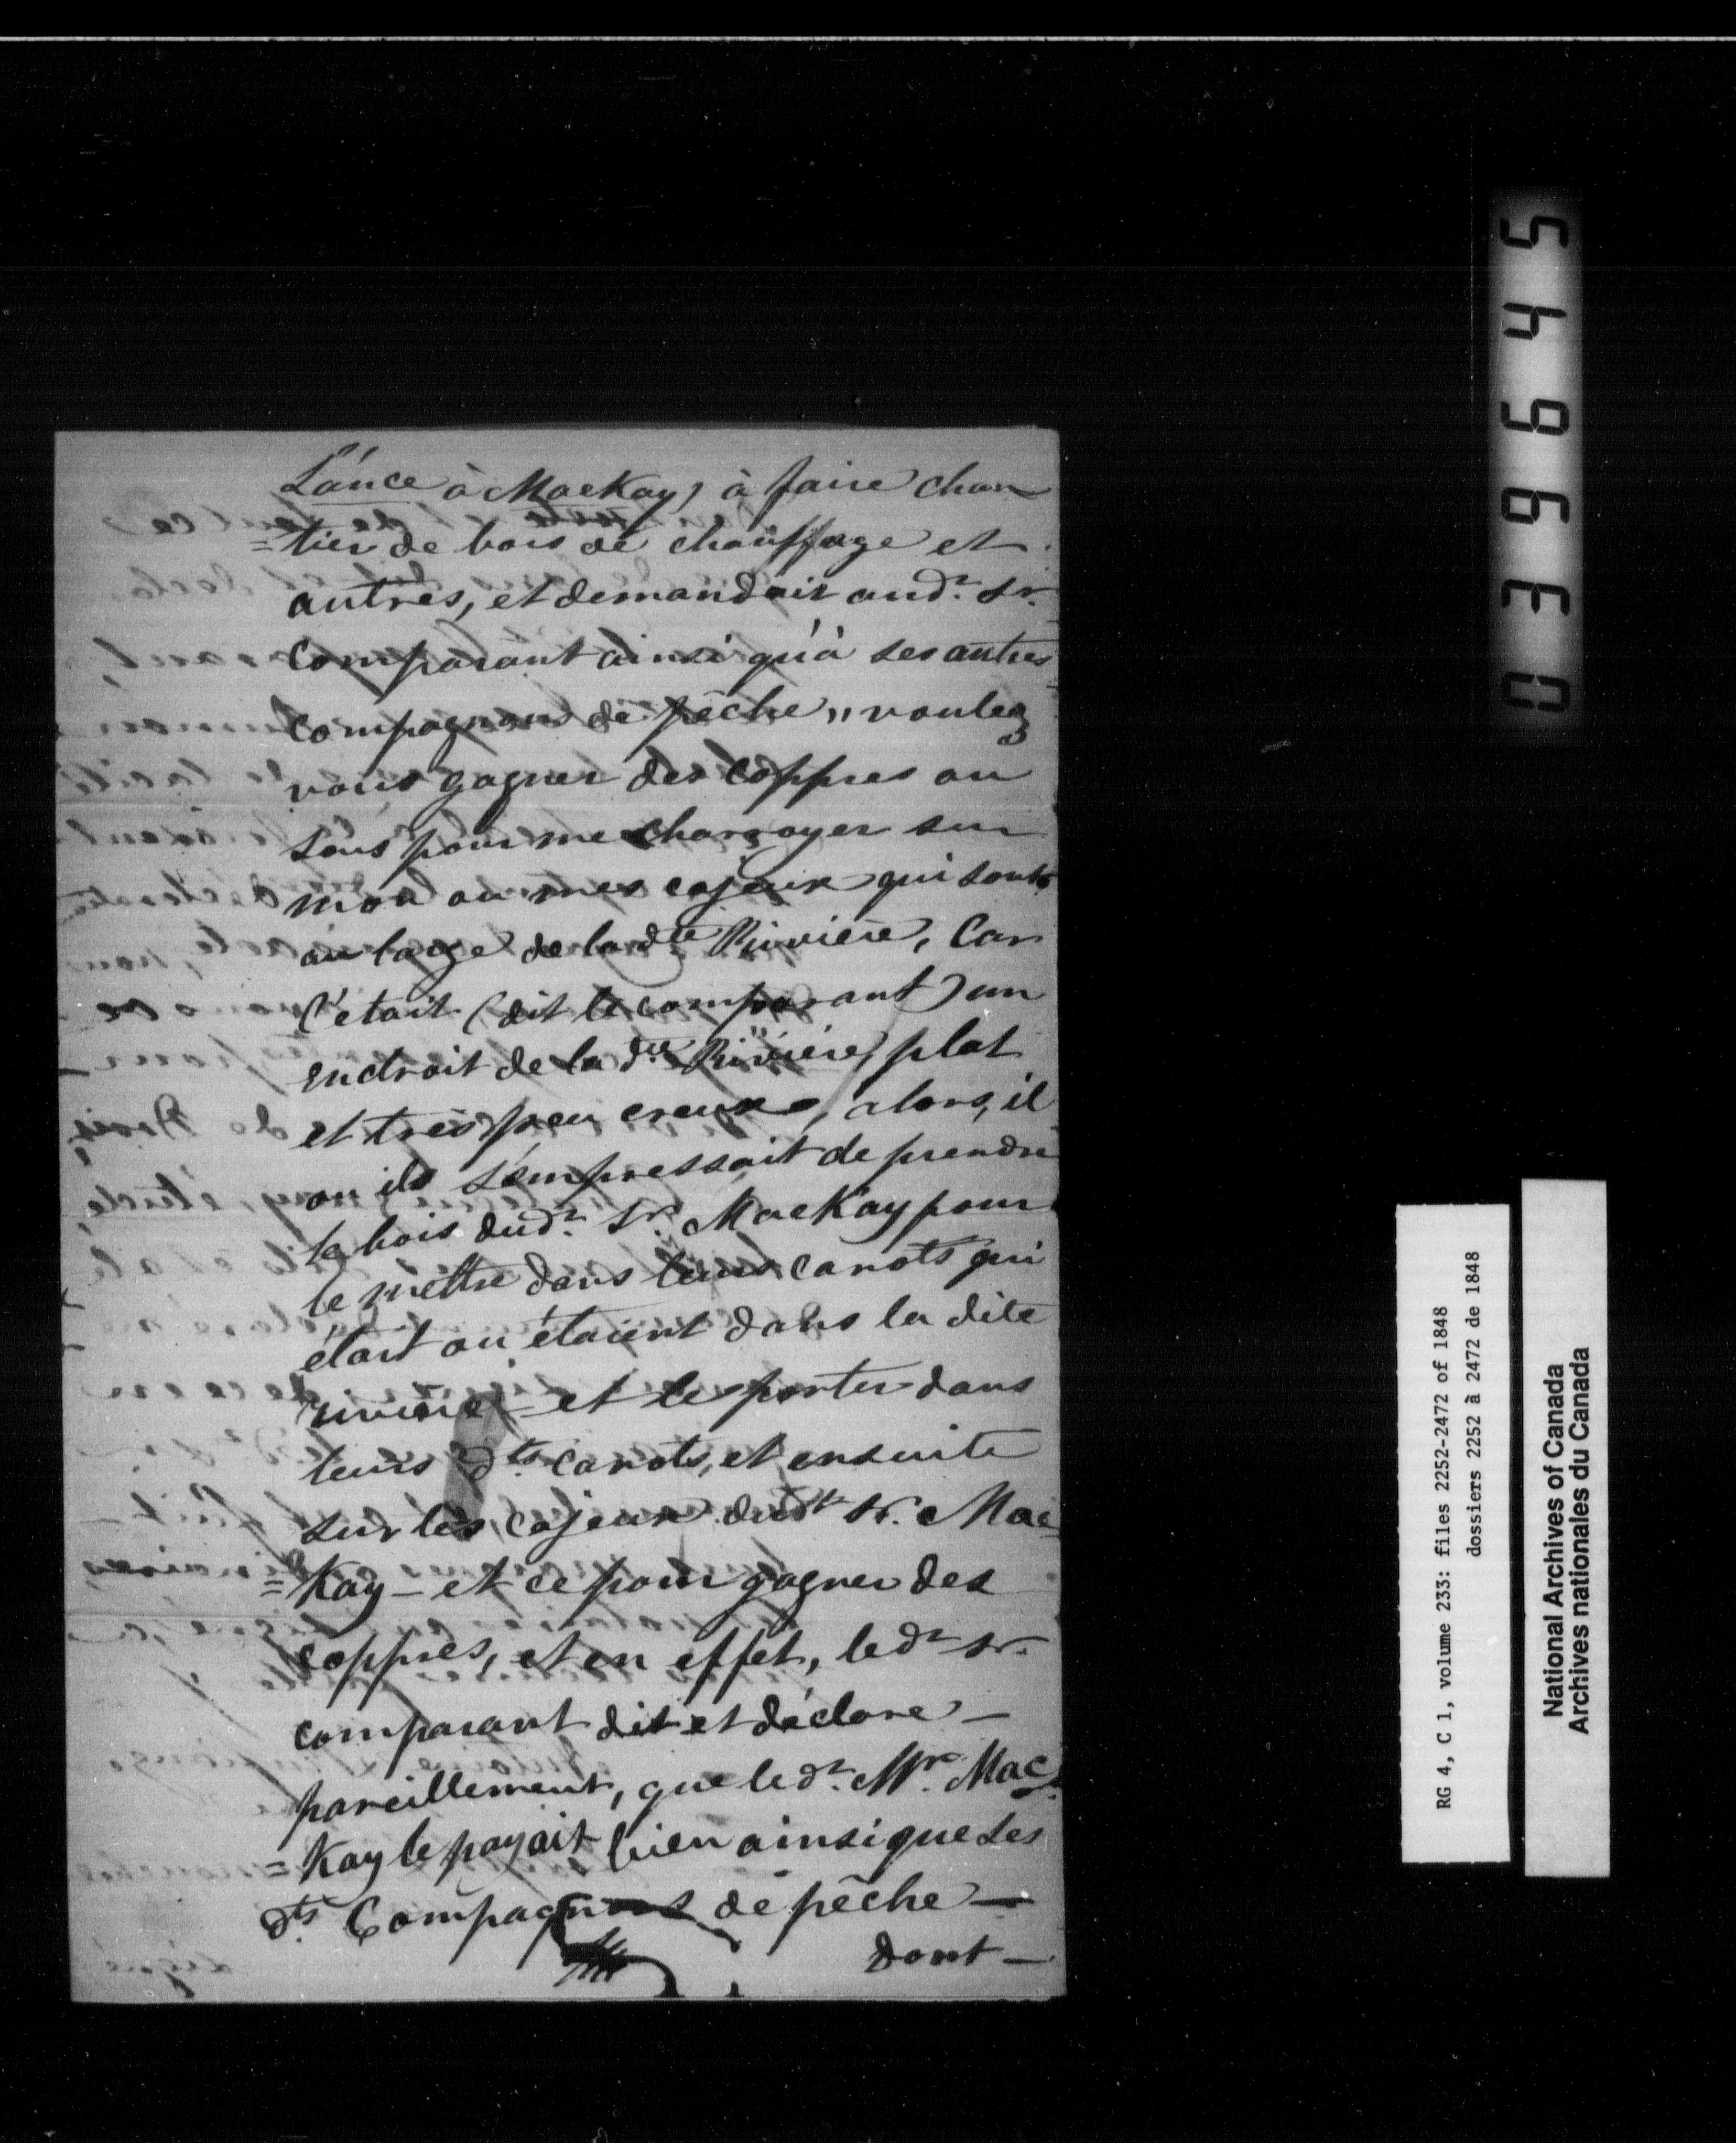 L'ance à MacKay, à faire chan
=tier de bois de chauffage et
autres, et demandait aud.t Sr.
Comparant ainsi qu'à ses autres
Compagnons de pêche „ voulez
vous gagner des Coppres ou
sous pour me charroyer sur
mon ou mes cajeux qui sont
au large de la dte Rivière, Car
C'était (dit le comparant) un
endroit de la dte Rivière, plat
et très peu creux, alors, il
ou ils s'empressait de prendre
le bois dud.t Sr. MacKay pour
le mettre dans leurs canots qui
était ou étaient dans la dite
rivière – et le porter dans
leurs dts canots, et ensuite
sur les cajeux dudt Sr. Mac
=Kay – et ce pour gagner des
coppres, et en effet, led.t Sr.
comparant dit et déclare –
pareillement, que led.t Mr. Mac
=Kay le payait bien ainsi que Ses
dts Compagnons de pêche –
Dont –
039645
RG 4, C 1, volume 233: files 2252-2472 of 1848
dossiers 2252 à 2472 de 1848
National Archives of Canada
Archives nationales du Canada